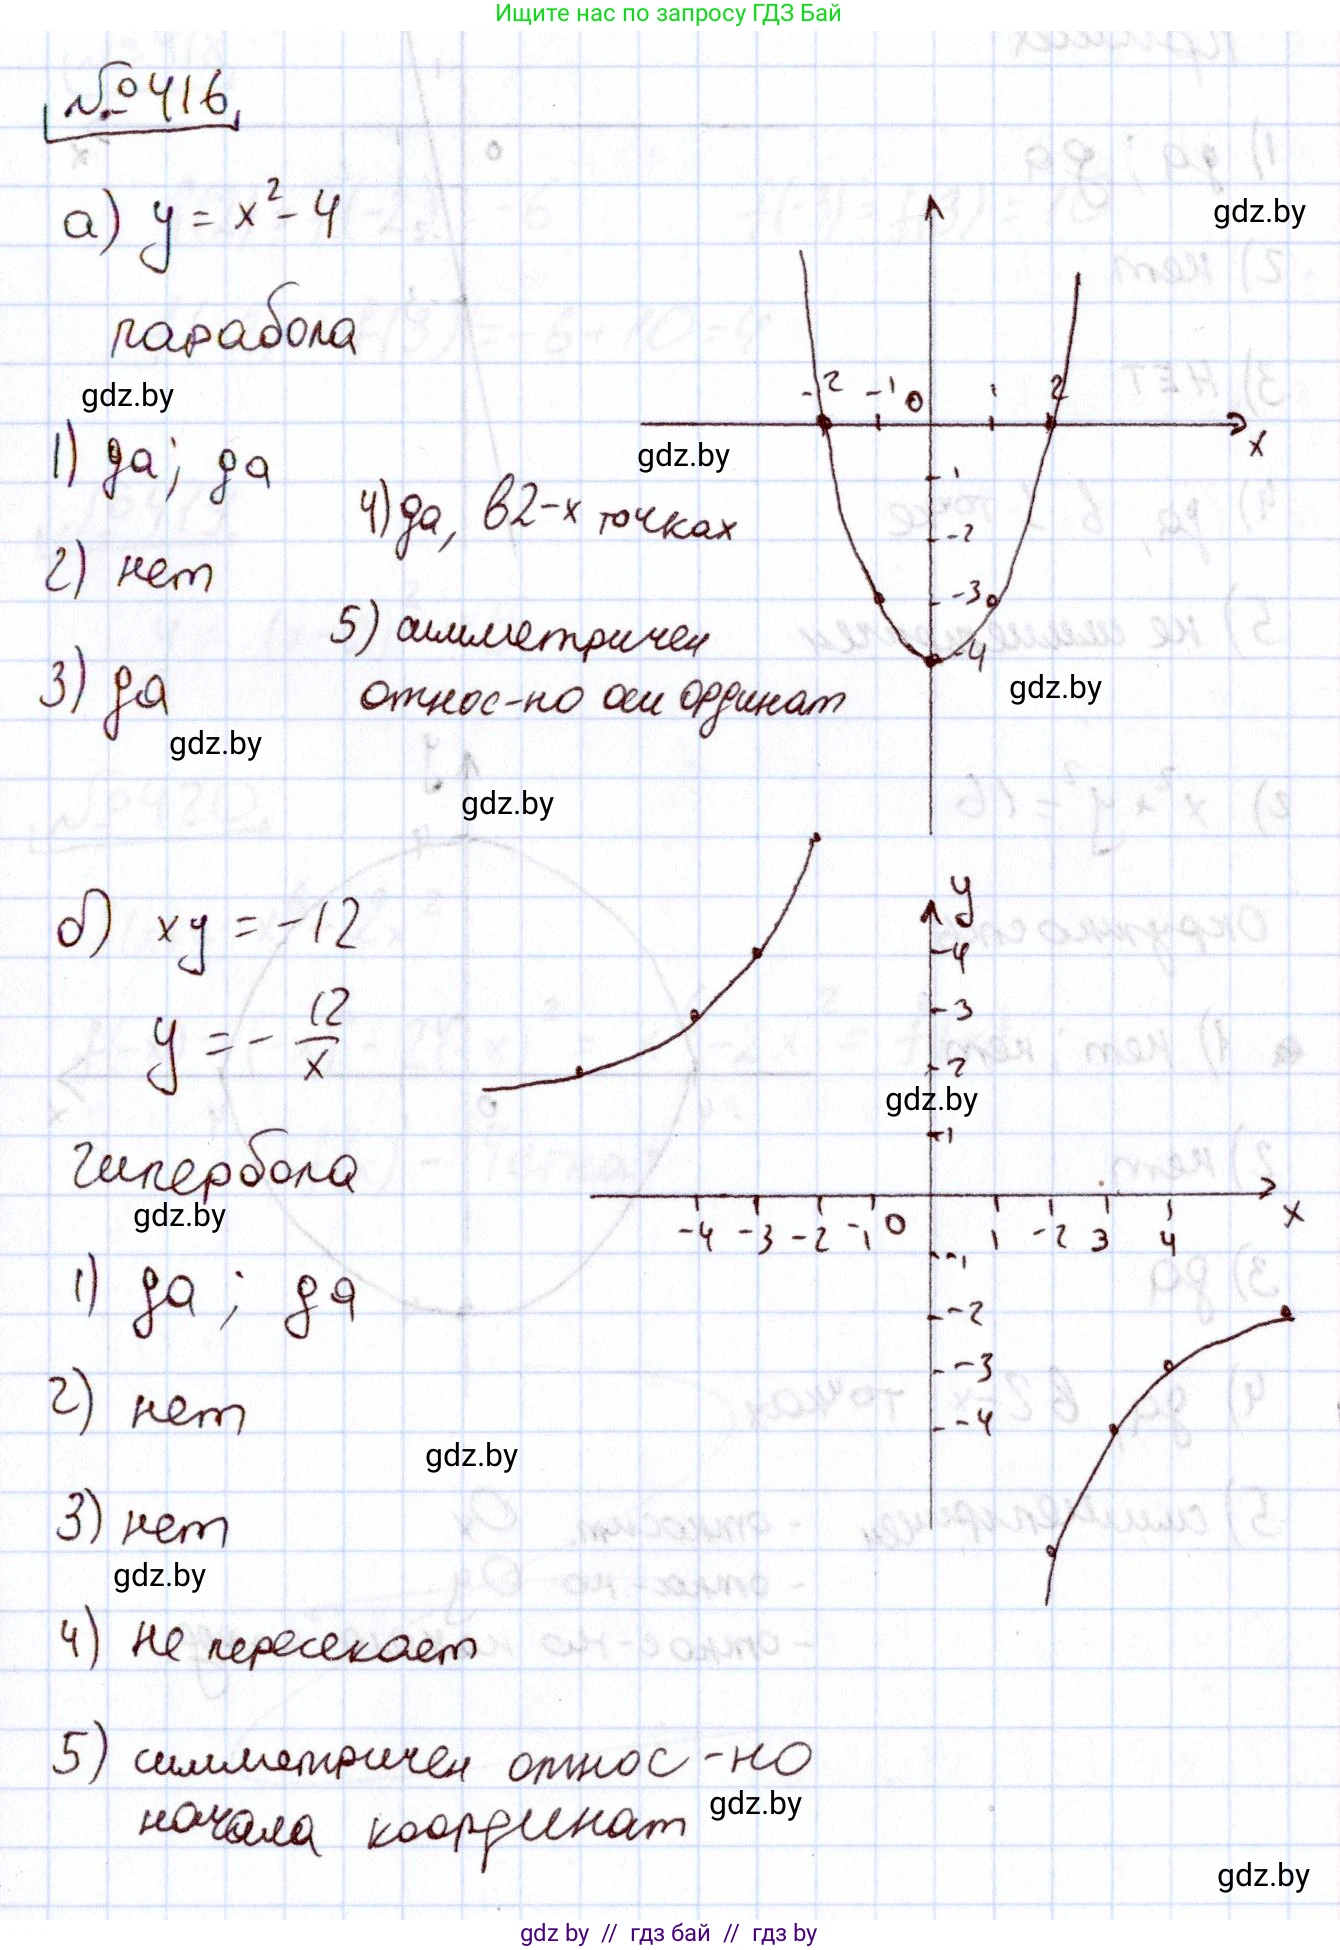 Ищите нас по запросу ГДЗ Бай
№416
а) y = x² - 4
парабола
gdz.by
gdz.by
1) да; да
2) нет
3) да
gdz.by
4) да, в 2-х точках
5) симметричен
относ-но оси ординат
gdz.by
-2 -1 0 1 2 x
gdz.by
-1
-2
-3
-4
gdz.by
б) xy = -12
y = - 12/x
гипербола
gdz.by
1) да; да
2) нет
gdz.by
3) нет
gdz.by
4) не пересекает
5) симметричен относ-но
начала координат
gdz.by
y
4
3
2
gdz.by
1
-4 -3 -2 -1 0 1 -2 3 4 x
-1
-2
-3
-4
gdz.by
gdz by // гдз бай // гдз by